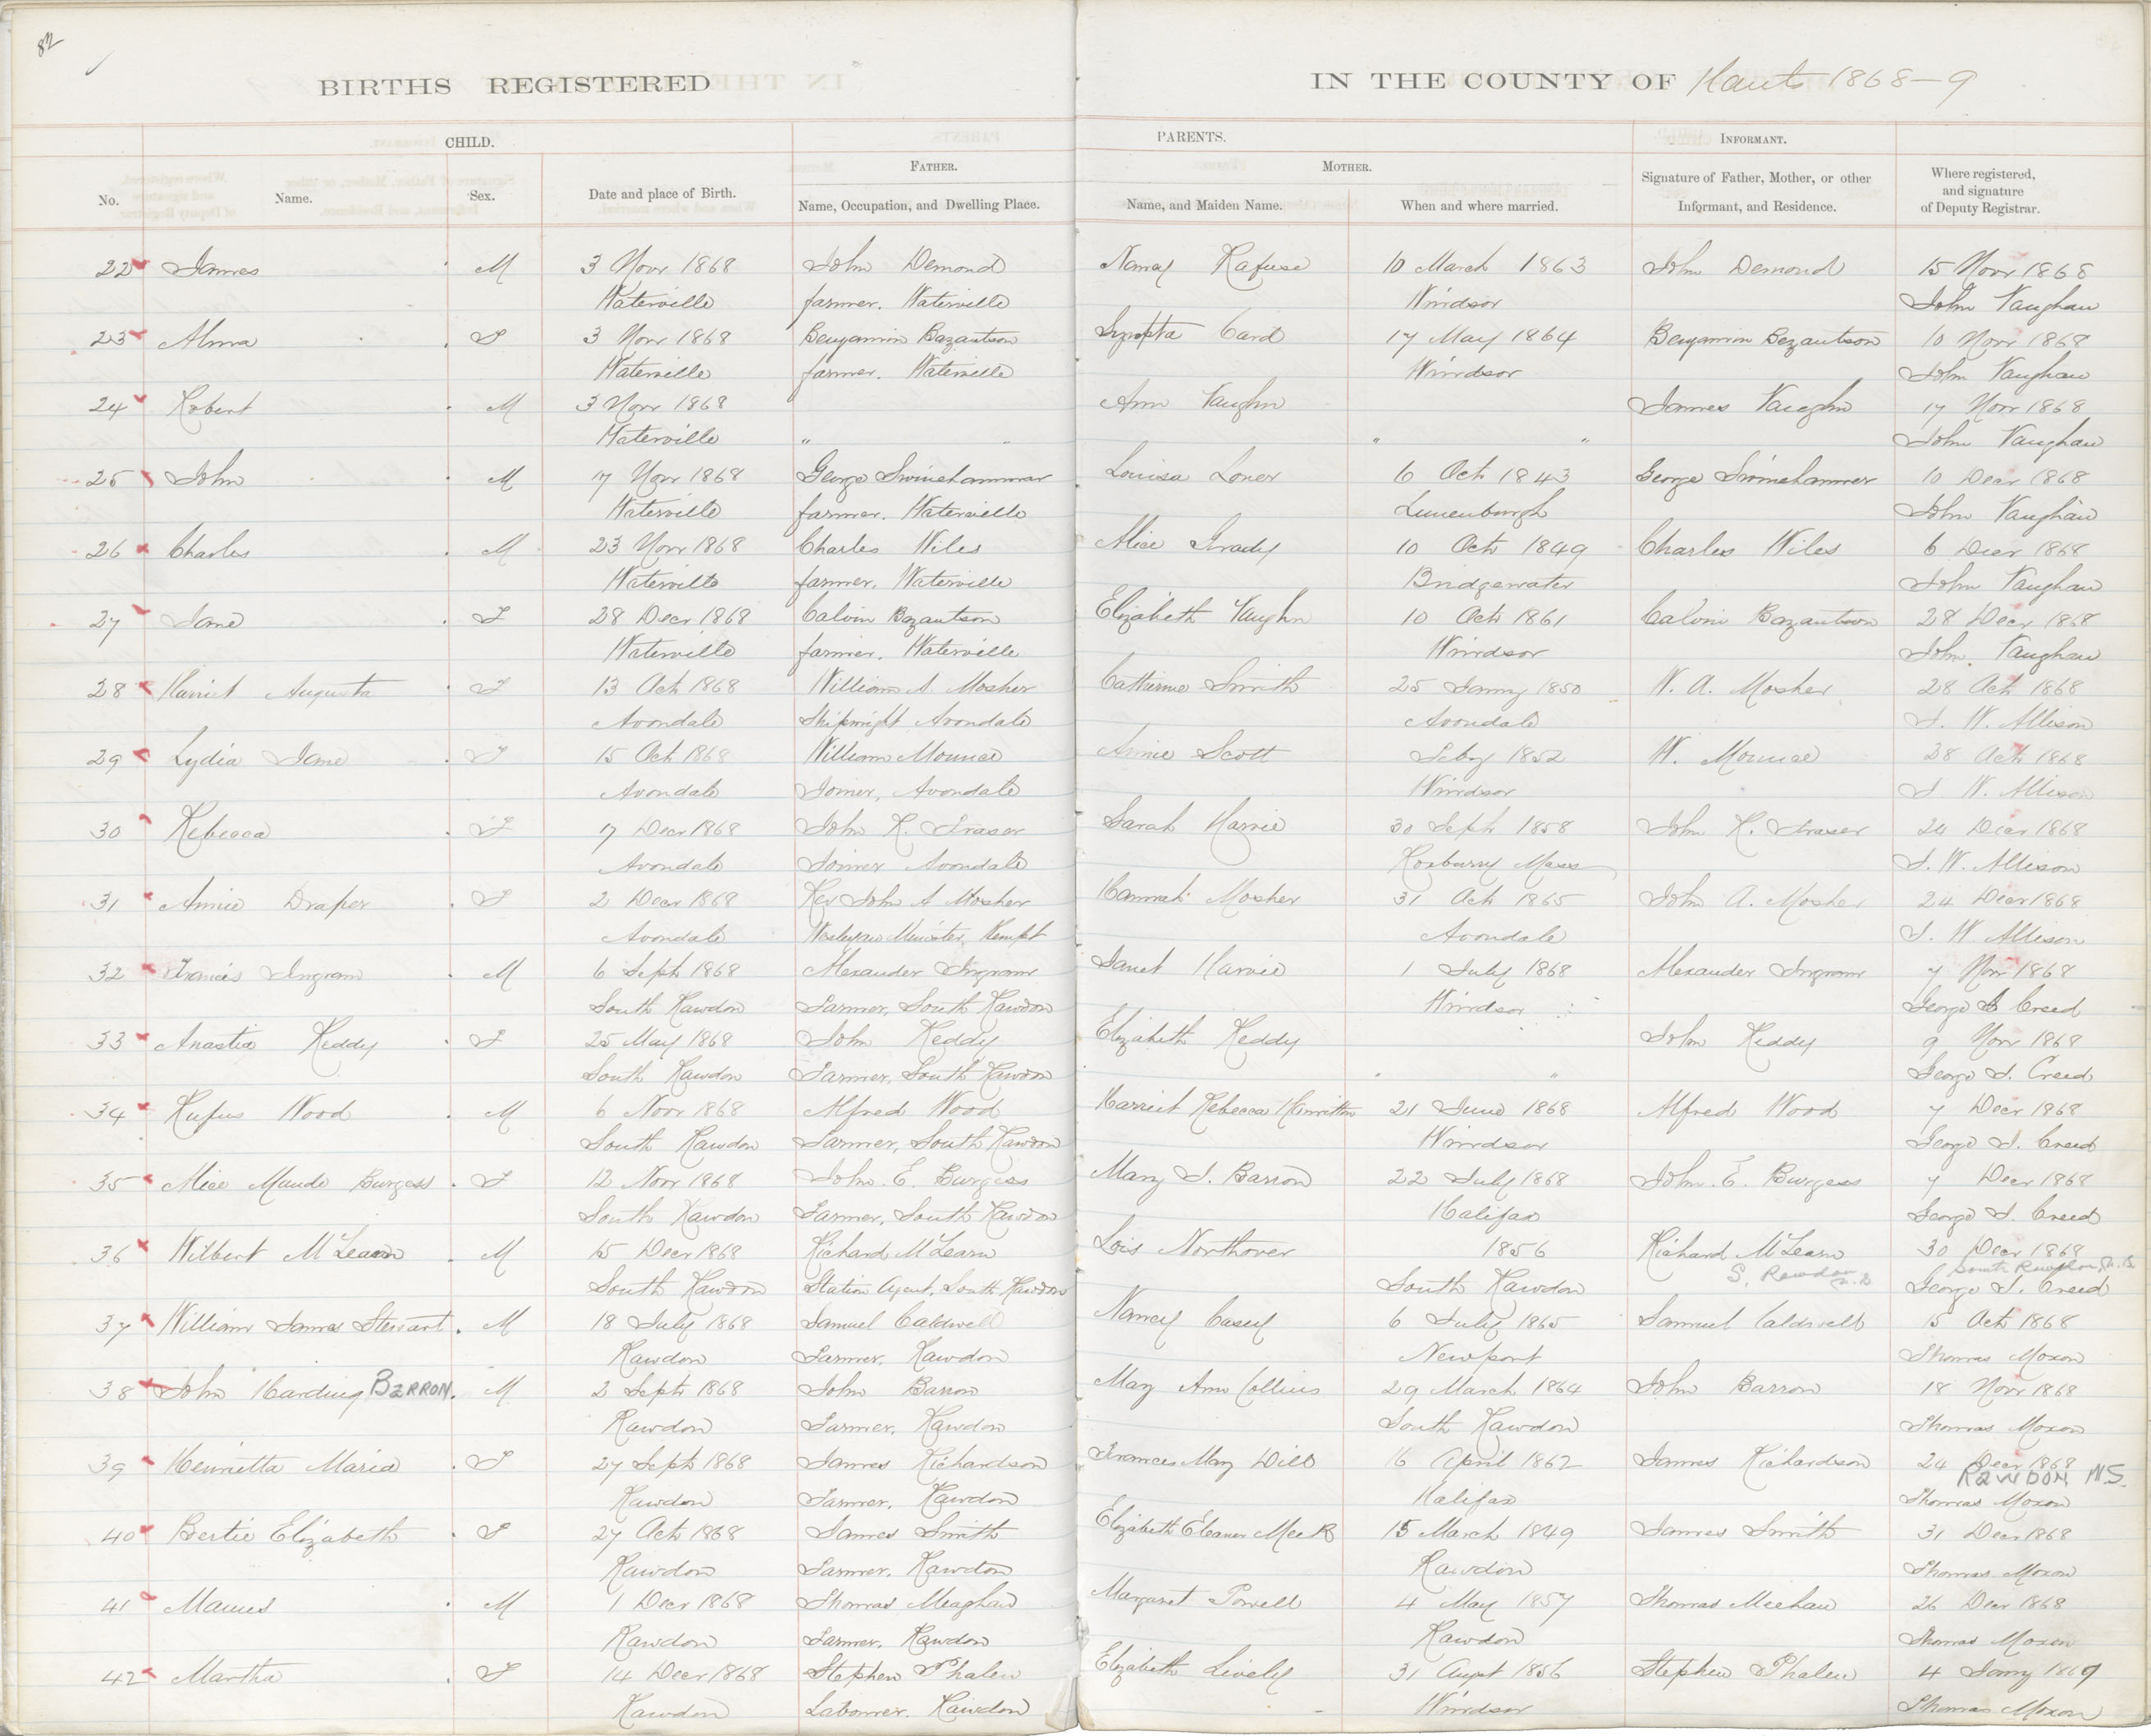 82
BIRTHS REGISTERED IN THE COUNTY OF Hants 1868-9
CHILD. PARENTS. INFORMANT.
FATHER. MOTHER.
No. Name. Sex. Date and place of Birth. Name, Occupation, and Dwelling Place. Name, and Maiden Name. When and where married. Signature of Father, Mother, or other Informant, and Residence. Where registered, and signature of Deputy Registrar.
22 James M 3 Novr 1868 John Demond Nancy Rafuse 10 March 1863 John Demond 15 Novr 1868
Waterville farmer. Waterville Windsor John Vaughan
23 Alma F 3 Novr 1868 Benjamin Bazantson Card 17 May 1864 Benjamin Bezantson 10 Novr 1868
Waterville farmer. Waterville Windsor John Vaughan
24 Robert M 3 Novr 1868 Ann Vaughn James Vaughn 17 Novr 1868
Waterville " " " " John Vaughan
25 John M 17 Novr 1868 George Swinehammar Louisa Loner 6 Oct 1843 George Swinehammer 10 Decr 1868
Waterville farmer. Waterville Lunenburgh John Vaughan
26 Charles M 23 Novr 1868 Charles Wiles Alice Grady 10 Oct 1849 Charles Wiles 6 Decr 1868
Waterville farmer. Waterville Bridgewater John Vaughan
27 Jane F 28 Decr 1868 Calvin Bazantson Elizabeth Vaughn 10 Oct 1861 Calvin Bazantson 28 Decr 1868
Waterville farmer. Waterville Windsor John. Vaughan
28 Harriet Augusta F 13 Oct 1868 William A. Mosher Catherine Smith 25 Jany 1850 W. A. Mosher 28 Oct 1868
Avondale Shipwright Avondale Avondale J. W. Allison
29 Lydia Jane F 15 Oct 1868 William Mounce Annie Scott Feby 1852 W. Mounce 28 Oct 1868
Avondale Joiner, Avondale Windsor J. W. Allison
30 Rebecca F 17 Decr 1868 John R. Fraser Sarah Harvie 30 Sept 1858 John R. Fraser 24 Decr 1868
Avondale Joiner Avondale Roxburry Mass J. W. Allison
31 Annie Draper F 2 Decr 1868 Rev John A Mosher Hannah Mosher 31 Oct 1865 John A. Mosher 24 Decr 1868
Avondale Wesleyan Minister, Kempt Avondale J. W. Allison
32 Francis Ingram M 6 Sept 1868 Alexander Ingram Janet Harvie 1 July 1868 Alexander Ingram 7 Novr 1868
South Rawdon Farmer, South Rawdon Windsor George J. Creed
33 Anastia Keddy F 25 May 1868 John Keddy Elizabeth Keddy John Keddy 9 Novr 1868
South Rawdon Farmer, South Rawdon " " George J. Creed
34 Rufus Wood M 6 Novr 1868 Alfred Wood Harriet Rebecca 21 June 1868 Alfred Wood 7 Decr 1868
South Rawdon Farmer, South Rawdon Windsor George J. Creed
35 Alice Maude Burgess F 12 Novr 1868 John. E. Burgess Mary J. Barron 22 July 1868 John. E. Burgess 7 Decr 1868
South Rawdon Farmer, South Rawdon Halifax George J. Creed
36 Wilbert McLearn M 15 Decr 1868 Richard McLearn Lois Northover 1856 Richard McLearn 30 Decr 1868
South Rawdon Station Agent, South Rawdon South Rawdon S. Rawdon South Rawdon George J. Creed
37 William James Stewart M 18 July 1868 Samuel Caldwell Nancy Casey 6 July 1865 Samuel Caldwell 15 Oct 1868
Rawdon Farmer, Rawdon Newport Thomas Moxon
38 John Harding BARRON. M 2 Sept 1868 John Barron Mary Ann Collins 29 March 1864 John Barron 18 Novr 1868
Rawdon Farmer, Rawdon South Rawdon Thomas Moxon
39 Henrietta Maria F 27 Sept 1868 James Richardson Frances Mary Dill 16 April 1862 James Richardson 24 Decr 1868
RAWDON, N.S.
Rawdon Farmer. Rawdon Halifax Thomas Moxon
40 Bertie Elizabeth F 27 Oct 1868 James Smith Elizabeth Eleanor Meek 15 March 1849 James Smith 31 Decr 1868
Rawdon Farmer. Rawdon Rawdon Thomas Moxon
41 M 1 Decr 1868 Thomas Meaghan Margaret Powell 4 May 1857 Thomas Meehan 26 Decr 1868
Rawdon Farmer. Rawdon Rawdon Thomas Moxon
42 Martha F 14 Decr 1868 Stephen Phalen Elizabeth Lively 31 Augst 1856 Stephen Phalen 4 Jany 1869
Rawdon Labourer. Rawdon Windsor Thomas Moxon